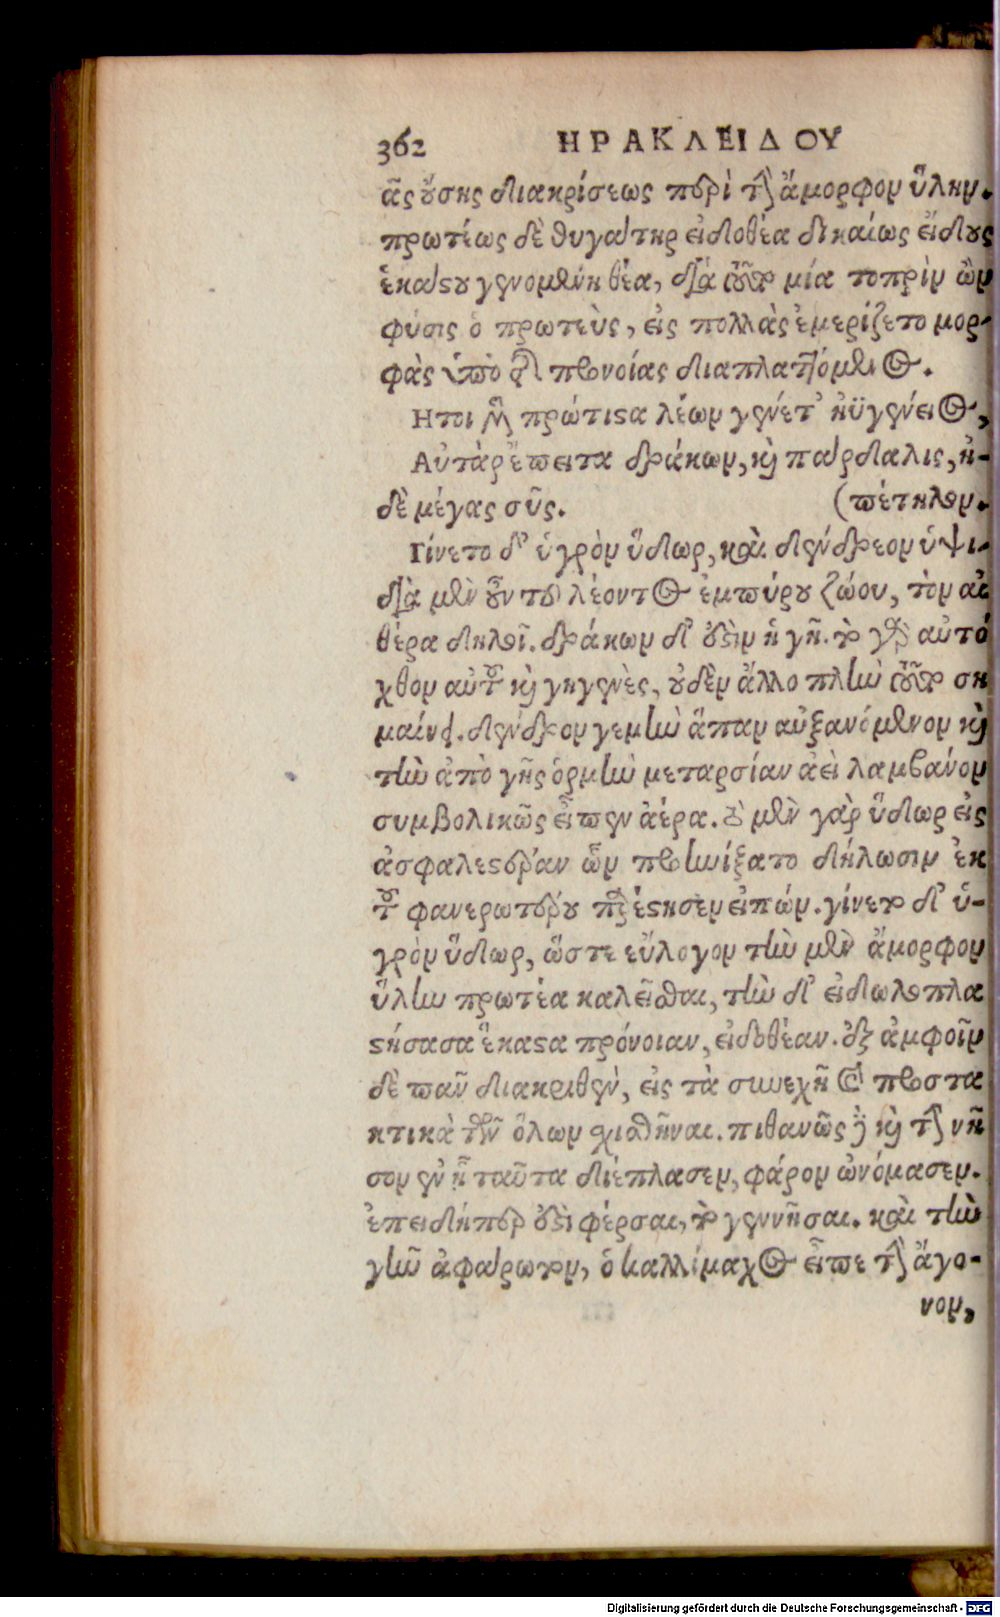 362 ΗΡΑΚΛΕΙΔΟΥ
ᾶς οὔσης διακρίσεως περὶ τὴν ἄμορφον ὕλην.
πρωτέως δὲ θυγάτηρ εἰδοθέα δικαίως εἴδους
ἑκάστου γενομένη θέα, διὰ τοῦτο μία τοπρὶν ὢν
φύσις ὁ πρωτεὺς, εἰς πολλὰς ἐμερίζετο μορ-
φὰς ὑπὸ τῆς προνοίας διαπλαττόμενος.
Ητοι μὲν πρώτιστα λέων γένετ' ἠϋγένειος,
Αὐτὰρ ἔπειτα δράκων, καὶ πάρδαλις, ἠ-
δὲ μέγας σῦς. (πέτηλον.
Γίνετο δ' ὑγρὸν ὕδωρ, καὶ δένδρεον ὑψι-
διὰ μὲν οὖν τοῦ λέοντος ἐμπύρου ζώου, τὸν αἰ
θέρα δηλοῖ. δράκων δ' ἐστὶν ἡ γῆ. τὸ γὰρ αὐτό
χθον αὐτοῦ καὶ γηγενὲς, οὐδὲν ἄλλο πλὴν τοῦτο ση
μαίνει. δένδρον γεμὴν ἅπαν αὐξανόμενον καὶ
τὴν ἀπὸ γῆς ὁρμὴν μεταρσίαν ἀεὶ λαμβάνον
συμβολικῶς εἶπεν ἀέρα. τὸ μὲν γὰρ ὕδωρ εἰς
ἀσφαλεστέραν ὧν προηνίξατο δήλωσιν ἐκ
τοῦ φανερωτέρου παρέστησεν εἰπών. γίνετο δ' ὑ-
γρὸν ὕδωρ, ὥστε εὔλογον τὴν μὲν ἄμορφον
ὕλην πρωτέα καλεῖσθαι, τὴν δ' εἰδωλοπλα
στήσασα ἕκαστα πρόνοιαν, εἰδοθέαν. ἐξ ἀμφοῖν
δὲ πᾶν διακριθὲν, εἰς τὰ συνεχῆ καὶ προστα
κτικὰ τῶν ὅλων χισθῆναι. πιθανῶς δὲ καὶ τὴν νῆ
σον ἐν ᾗ ταῦτα διέπλασεν, φάρον ὠνόμασεν.
ἐπειδήπερ ἐστὶ φέρσαι, τὸ γεννῆσαι. καὶ τὴν
γῆν ἀφάρωτον, ὁ καλλίμαχος εἶπε τὴν ἄγο-
νον,
Digitalisierung gefördert durch die Deutsche Forschungsgemeinschaft - DFG